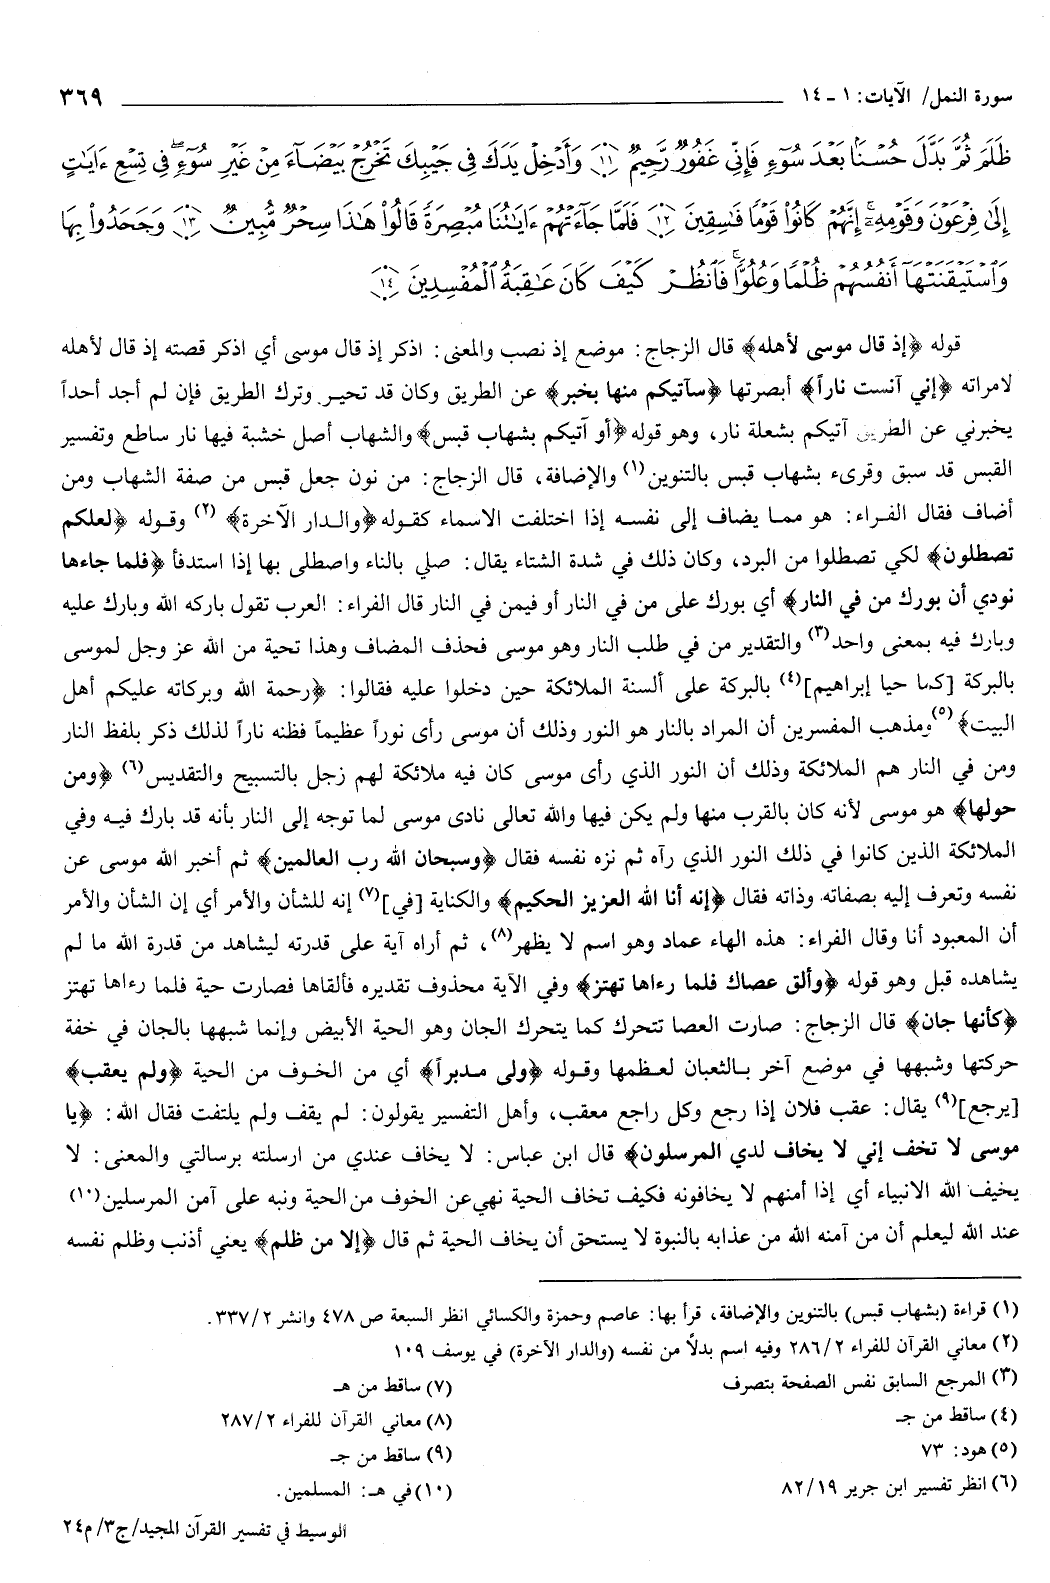 سورة النمل/ الآيات: ١ - ١٤ ٣٦٩
ظَلَمَ ثُمَّ بَدَّلَ حُسْنًا بَعْدَ سُوٓءٍ فَإِنِّى غَفُورٌ رَّحِيمٌ ﴿١١﴾ وَأَدْخِلْ يَدَكَ فِى جَيْبِكَ تَخْرُجْ بَيْضَآءَ مِنْ غَيْرِ سُوٓءٍ ۖ فِى تِسْعِ ءَايَٰتٍ
إِلَىٰ فِرْعَوْنَ وَقَوْمِهِۦٓ ۚ إِنَّهُمْ كَانُوا۟ قَوْمًا فَٰسِقِينَ ﴿١٢﴾ فَلَمَّا جَآءَتْهُمْ ءَايَٰتُنَا مُبْصِرَةً قَالُوا۟ هَٰذَا سِحْرٌ مُّبِينٌ ﴿١٣﴾ وَجَحَدُوا۟ بِهَا
وَٱسْتَيْقَنَتْهَآ أَنفُسُهُمْ ظُلْمًا وَعُلُوًّا ۚ فَٱنظُرْ كَيْفَ كَانَ عَٰقِبَةُ ٱلْمُفْسِدِينَ ﴿١٤﴾
قوله ﴿إذ قال موسى لأهله﴾ قال الزجاج: موضع إذ نصب والمعنى: اذكر إذ قال موسى أي اذكر قصته إذ قال لأهله
لامراته ﴿إني آنست ناراً﴾ أبصرتها ﴿سآتيكم منها بخبر﴾ عن الطريق وكان قد تحير وترك الطريق فإن لم أجد أحداً
يخبرني عن الطريق آتيكم بشعلة نار، وهو قوله ﴿أو آتيكم بشهاب قبس﴾ والشهاب أصل خشبة فيها نار ساطع وتفسير
القبس قد سبق وقرىء بشهاب قبس بالتنوين(١) والإضافة، قال الزجاج: من نون جعل قبس من صفة الشهاب ومن
أضاف فقال الفراء: هو مما يضاف إلى نفسه إذا اختلفت الاسماء كقوله ﴿والدار الآخرة﴾ (٢) وقوله ﴿لعلكم
تصطلون﴾ لكي تصطلوا من البرد، وكان ذلك في شدة الشتاء يقال: صلي بالناء واصطلى بها إذا استدفأ ﴿فلما جاءها
نودي أن بورك من في النار﴾ أي بورك على من في النار أو فيمن في النار قال الفراء: العرب تقول باركه الله وبارك عليه
وبارك فيه بمعنى واحد(٣) والتقدير من في طلب النار وهو موسى فحذف المضاف وهذا تحية من الله عز وجل لموسى
بالبركة [كما حيا إبراهيم](٤) بالبركة على ألسنة الملائكة حين دخلوا عليه فقالوا: ﴿رحمة الله وبركاته عليكم أهل
البيت﴾ (٥) ومذهب المفسرين أن المراد بالنار هو النور وذلك أن موسى رأى نوراً عظيماً فظنه ناراً لذلك ذكر بلفظ النار
ومن في النار هم الملائكة وذلك أن النور الذي رأى موسى كان فيه ملائكة لهم زجل بالتسبيح والتقديس(٦) ﴿ومن
حولها﴾ هو موسى لأنه كان بالقرب منها ولم يكن فيها والله تعالى نادى موسى لما توجه إلى النار بأنه قد بارك فيه وفي
الملائكة الذين كانوا في ذلك النور الذي رآه ثم نزه نفسه فقال ﴿وسبحان الله رب العالمين﴾ ثم أخبر الله موسى عن
نفسه وتعرف إليه بصفاته وذاته فقال ﴿إنه أنا الله العزيز الحكيم﴾ والكناية [في](٧) إنه للشأن والأمر أي إن الشأن والأمر
أن المعبود أنا وقال الفراء: هذه الهاء عماد وهو اسم لا يظهر(٨)، ثم أراه آية على قدرته ليشاهد من قدرة الله ما لم
يشاهده قبل وهو قوله ﴿وألق عصاك فلما رءاها تهتز﴾ وفي الآية محذوف تقديره فألقاها فصارت حية فلما رءاها تهتز
﴿كأنها جان﴾ قال الزجاج: صارت العصا تتحرك كما يتحرك الجان وهو الحية الأبيض وإنما شبهها بالجان في خفة
حركتها وشبهها في موضع آخر بالثعبان لعظمها وقوله ﴿ولى مدبراً﴾ أي من الخوف من الحية ﴿ولم يعقب﴾
[يرجع](٩) يقال: عقب فلان إذا رجع وكل راجع معقب، وأهل التفسير يقولون: لم يقف ولم يلتفت فقال الله: ﴿يا
موسى لا تخف إني لا يخاف لدي المرسلون﴾ قال ابن عباس: لا يخاف عندي من ارسلته برسالتي والمعنى: لا
يخيف الله الانبياء أي إذا أمنهم لا يخافونه فكيف تخاف الحية نهي عن الخوف من الحية ونبه على آمن المرسلين(١٠)
عند الله ليعلم أن من آمنه الله من عذابه بالنبوة لا يستحق أن يخاف الحية ثم قال ﴿إلا من ظلم﴾ يعني أذنب وظلم نفسه
(١) قراءة (بشهاب قبس) بالتنوين والإضافة، قرأ بها: عاصم وحمزة والكسائي انظر السبعة ص ٤٧٨ وانشر ٣٣٧/٢.
(٢) معاني القرآن للفراء ٢٨٦/٢ وفيه اسم بدلاً من نفسه (والدار الآخرة) في يوسف ١٠٩
(٣) المرجع السابق نفس الصفحة بتصرف
(٤) ساقط من جـ
(٥) هود: ٧٣
(٦) انظر تفسير ابن جرير ٨٢/١٩
(٧) ساقط من هـ
(٨) معاني القرآن للفراء ٢٨٧/٢
(٩) ساقط من جـ
(١٠) في هـ: المسلمين.
الوسيط في تفسير القرآن المجيد/ ج٣/ م٢٤